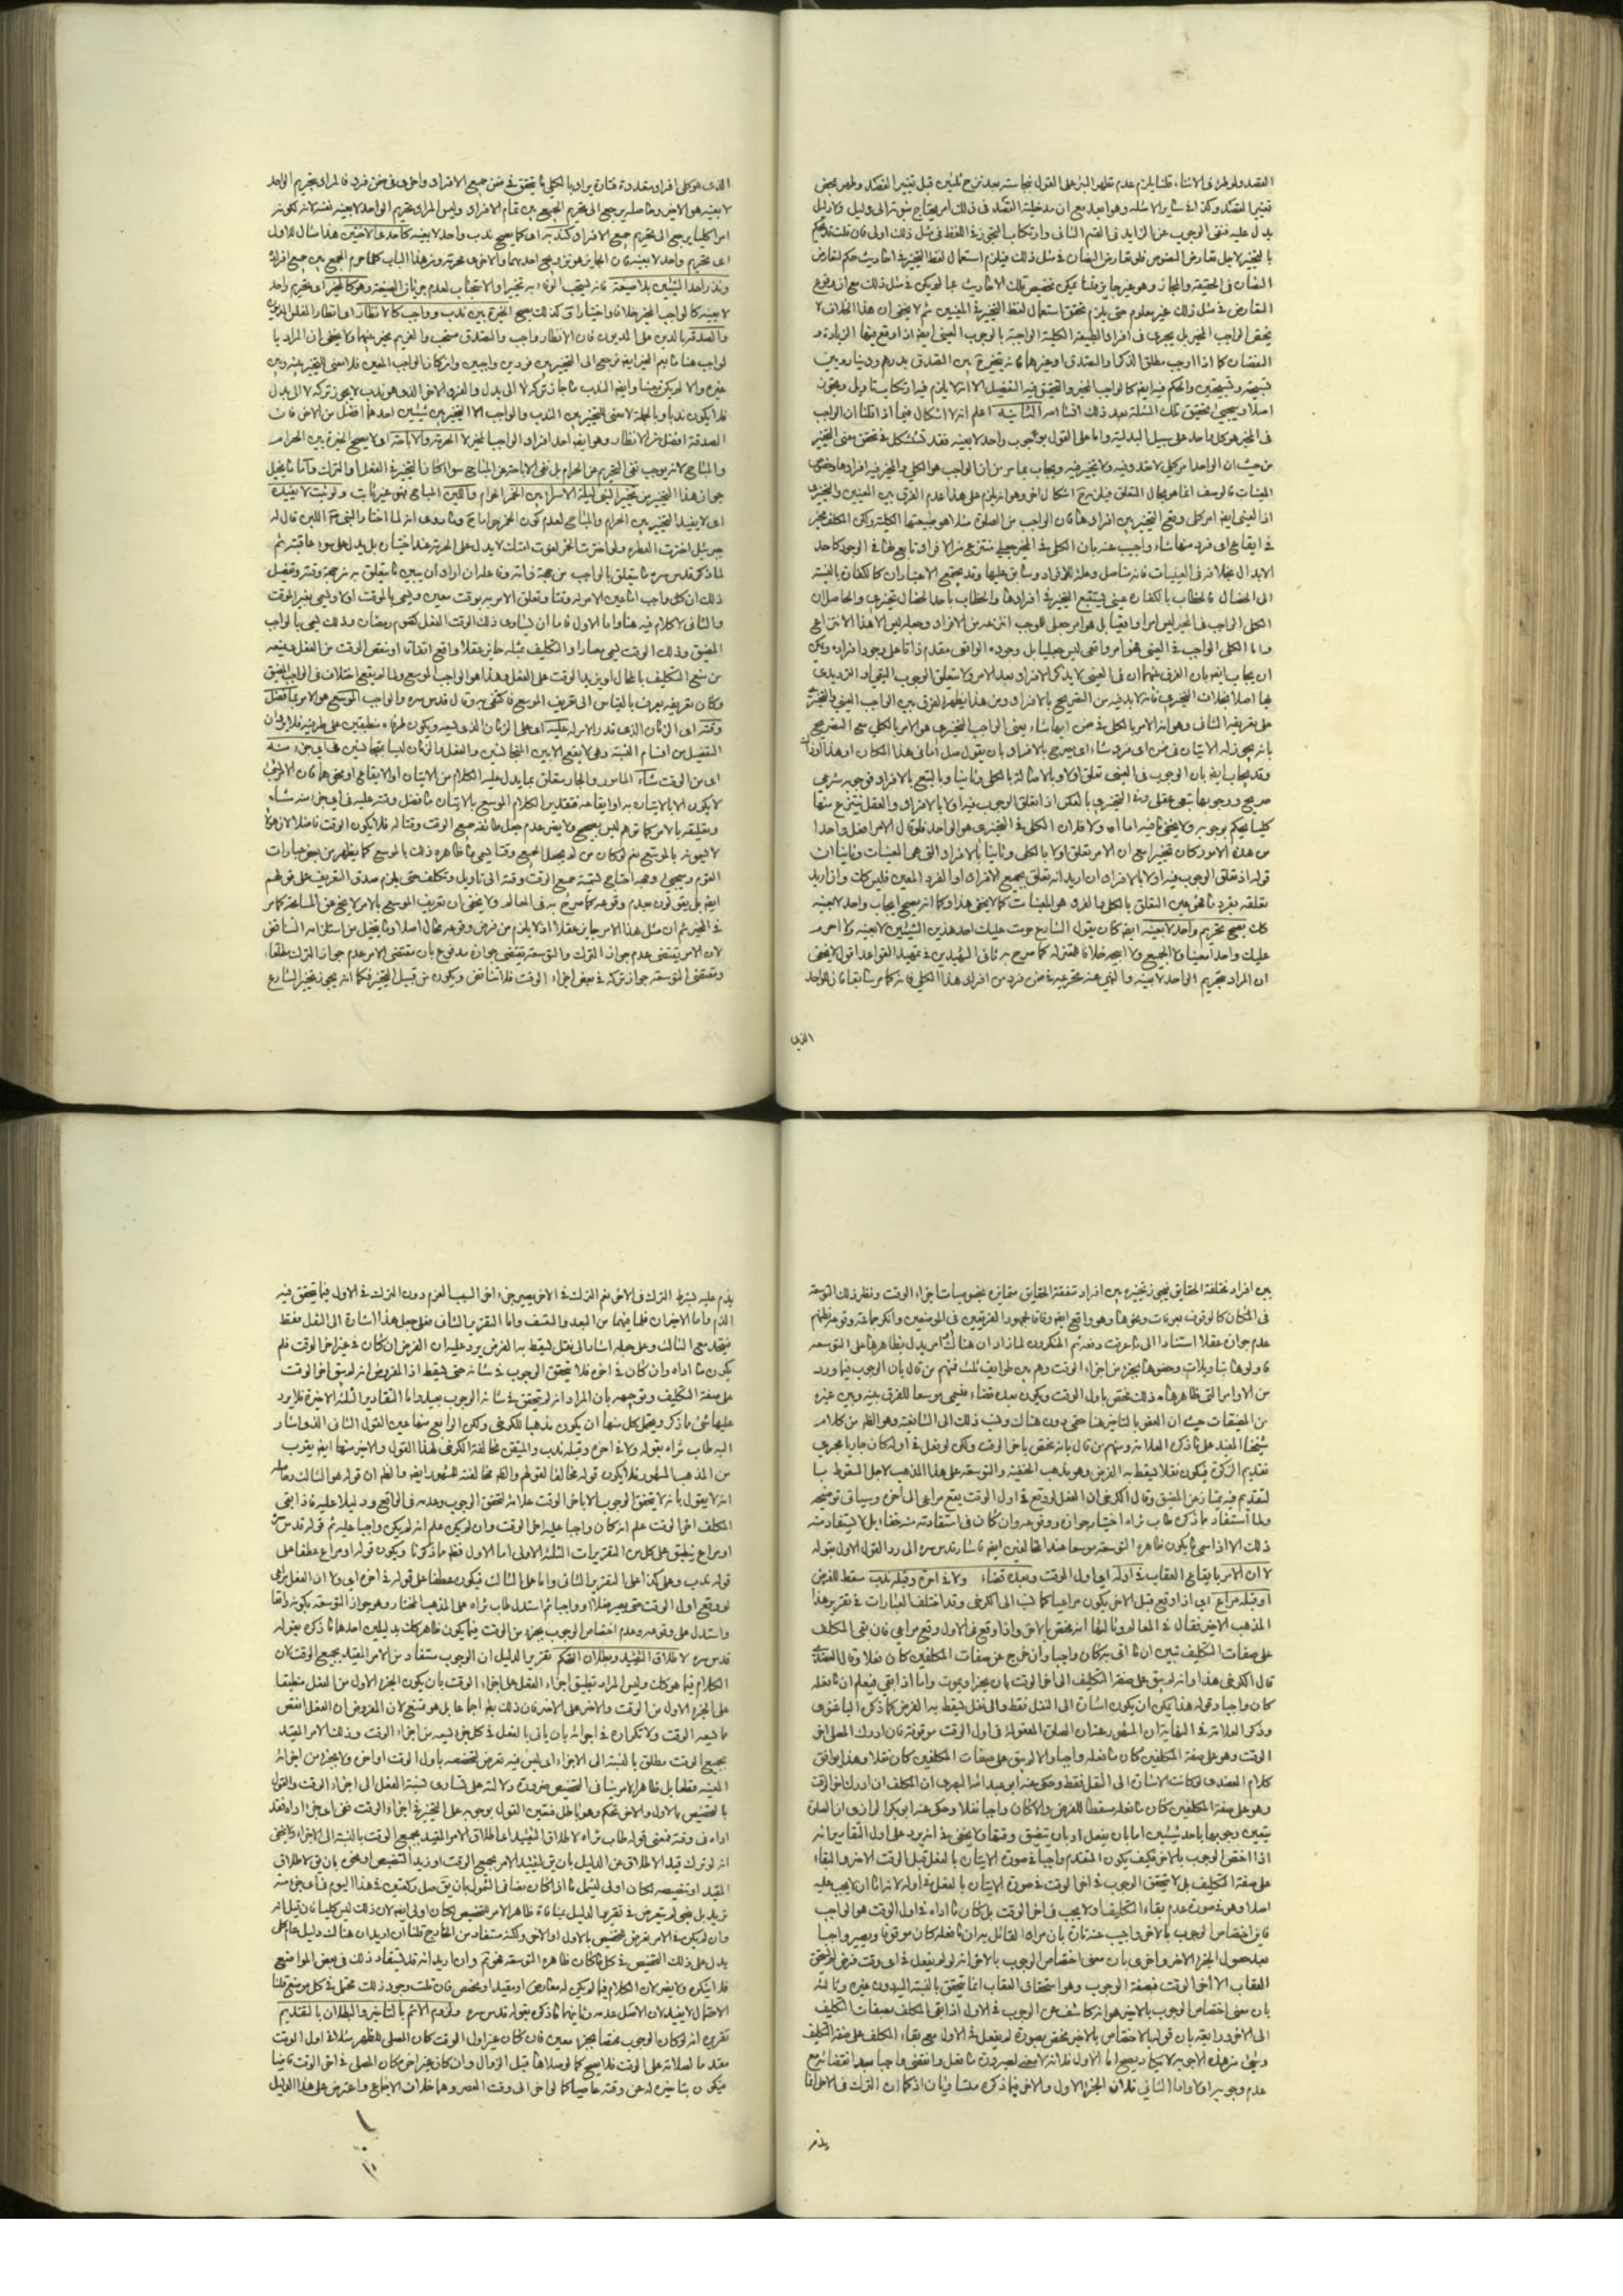 القصد ولو طرء فى الاثناء قلنا يلزم عدم تطهر البئر على القول بنجاسته بعد نزح ثلثين قبل تغيير القصد وطهر بمحض
تغيير القصد وكذا فى سائر الامثلة وهو بعيد مع ان مدخلية القصد فى ذلك امر يحتاج ثبوته الى دليل ولا دليل
يدل عليه فنفى الوجوب عن الزايد فى القسم الثانى وارتكاب التجوز فى اللفظ فى مثل ذلك اولى فان قلت قد حكم
بالتخيير لاجل تعارض النصوص فلو تعارض النصان فى مثل ذلك فيلزم استعمال لفظ التخيير فى احاديث حكم تعارض
النصان فى الحقيقة والمجاز وهو غير جايز قلنا يمكن تخصيص تلك الاحاديث بما لم يكن فى مثل ذلك مع ان وقوع
التعارض فى مثل ذلك غير معلوم حتى يلزم تحقق استعمال لفظ التخيير فى المعنيين ثم لا يخفى ان هذا الخلاف لا
يختص الواجب المخير بل يجرى فى افراد الطبيعة الكلية الواجبة بالوجوب العينى ايضا اذا وقع بينها الزيادة و
النقصان كما اذا اوجب مطلق الذكر او التصدق او غيرها فانه يتخير بين التصدق بدرهم ودينار وبين
تسبيحة وتسبيحتين والحكم فيه ايضا كالواجب المخير والتحقيق فيه التفصيل الا انه لا يلزم فيه ارتكاب تاويل وتجوز
اصلا وسيجئ تحقيق تلك المسئلة بعد ذلك انشاء الله الثانية اعلم انه لا اشكال فيما اذا قلنا ان الواجب
فى المخير هو كل واحد على سبيل البدلية واما على القول بوجوب واحد لا بعينه فقد استشكل فى تحقق معنى التخيير
من حيث ان الواحد امر كلى لا تعدد فيه ولا تخيير فيه ويجاب بما مر من ان الواجب هو الكلى والمخير فيه افراده
اذ العينى ايضا امر كلى وقع التخيير بين افراده فان الواجب من الصلوة مثلا هو طبيعتها الكلية ولكن المكلف مخير
فى ايقاع اى فرد منها شاء واجيب عنه بان الكلى فى المخير جعلى منتزع من الافراد تابع لها فى الوجود كاحد
الابدال بخلافه فى العينيات فانه متاصل وعلة للافراد وسابق عليها وقد يجتمع الاعتباران كالكفارة بالنسبة
الى الخصال فالخطاب بالكفارة عينى يستتبع التخيير فى افرادها والخطاب باحد الخصال تخييرى والحاصل ان
الكلى الواجب فى المخير ليس امرا واقعيا بل هو امر جعلى للوجب انتزعه من الافراد وجعله ليس الا هذا الانتزاع
واما الكلى الواجب فى العينى فهو امر واقعى ليس جعليا بل وجوده الواقعى مقدم ذاتا على وجود افراده ويمكن
ان يجاب ايضا بان الفرق بينهما ان فى العينى لا يذكر الافراد بعد الامر ولا يتعلق الوجوب التعيينى او الترديدى
على تعريفه الثانى وهو انه الامر بالكلى فى ضمن ايها شاء يعنى الواجب التخييرى هو الامر بالكلى مع التصريح
بانه يجوز له الاتيان فى ضمن اى فرد شاء اى يصرح بالافراد بان يقول صل اما فى هذا المكان او هذا
وقد يجاب ايضا بان الوجوب فى العينى تعلق اولا وبالاصالة بالكلى وثانيا وبالتبع بالافراد فوجوبه شرعى
صريح ووجوبها تبعى عقلى وفى التخييرى بالعكس اذ تعلق الوجوب فيه اولا بالافراد والعقل ينتزع منها
كليا يحكم بوجوبه ولا يخفى ما فيه اما اولا فلان الكلى فى التخييرى هو الواحد فلو قال الامر افعل واحدا
من هذه الامور كان تخييرا مع ان الامر تعلق اولا بالكلى وثانيا بالافراد التى هى المعينات وثانيا ان
قوله اذ تعلق الوجوب فيه اولا بالافراد ان اريد انه تعلق بجميع الافراد او الفرد المعين فليس كك وان اريد
تعلقه بفرد ما فهو عين التعلق بالكلى الذى هو المعينات كما لا يخفى هذا وكما انه يصح ايجاب واحد لا بعينه
كك يصح تحريم واحد لا بعينه ايضا كان يقول الشارع حرمت عليك احد هذين الشيئين لا بعينه ولا احرم
عليك واحدا معينا ولا الجميع ولا ابيحه خلافا للمعتزلة كما صرح به ثانى الشهيدين فى تمهيد القواعد اقول لا يخفى
ان المراد بتحريم الواحد لا بعينه والنهى عنه تحريمه فى ضمن فرد من افراد هذا الكلى فانه كما مر سابقا فان الواحد
الذى
الذى هو كلى افراده متعددة فتارة يراد بالكلى ما يتحقق فى ضمن جميع الافراد واخرى فى ضمن فرد فالمراد بتحريم الواحد
لا بعينه هو الاخير وحاصله يرجع الى تحريم الجميع بين تمام الافراد وليس المراد تحريم الواحد لا بعينه نفسه لانه لكونه
امرا كليا يرجع الى تحريم جميع الافراد كندبه اى كما يصح ندب واحد لا بعينه كاحدى الاختين هذا مثال للاول
اى تحريم واحد لا بعينه فان الجايز هو تزويج احديهما والاخرى محرمة ومن هذا الباب كلما حرم الجمع بين جميع افراده
لا بعينه كالواجب المخير خلافا واختيارا و كذلك يصح الخيرة بين ندب وواجب كالانظار اى انظار المفلس المديون
والصدقة بالدين على المديون فان الانظار واجب والتصدق مستحب والغريم مخير بينهما ولا يخفى ان المراد با
لواجب هنا ما يعم المخير ايضا فيرجع الى التخيير بين فردين واجبين وان كان الواجب المعين فلا معنى للتخيير بينه وبين
غيره والا لم يكن معينا وايضا الندب ما جاز تركه لا الى بدل والفرد الاخر الذى هو ندب لا يجوز تركه لا الى بدل
فلا يكون ندبا وبالجملة لا معنى للتخيير بين الندب والواجب الا التخيير بين شيئين احدهما افضل من الاخر فان
الصدقة افضل من الانظار وهو ايضا احد افراد الواجب المخير لا الحرمة والاباحة اى لا يصح الخيرة بين الحرام
والمباح لانه يوجب نفى التحريم عن الحرام بل نفى الاباحة عن المباح سواء كان التخيير فى الفعل او الترك واما ما تخيل
جواز هذا التخيير من تخيير النبى ليلة الاسراء بين الخمر الحرام واللبن المباح فهو غير ثابت ولو ثبت لا يفيده
اى لا يفيد التخيير بين الحرام والمباح لعدم كون الخمر حراما وما روى انه لما اختار النبى اللبن قال له
جبرئيل اخترت الفطرة ولو اخترت الخمر لغوت امتك لا يدل على الحرمة عند اختياره بل يدل على سوء عاقبته ثم
لما ذكر قدس سره ما يتعلق بالواجب من جهة ذاته وفاعله اراد ان يبين ما يتعلق به من جهة وقته وتفصيل
ذلك ان كل واجب اما عين الامر له وقتا وتعلق الامر به بوقت معين ويسمى بالموقت او لا ويسمى بغير الموقت
والثانى لا كلام فيه هنا واما الاول فاما ان يساوى ذلك الوقت الفعل كصوم رمضان وذلك يسمى بالواجب
المضيق وذلك الوقت يسمى معيارا والتكليف بمثله جايز عقلا واقع اتفاقا او نقص الوقت من الفعل ويمنعه
من منع التكليف بالمحال او يزيد الوقت على الفعل وهذا هو الواجب الموسع ولما لم يقع اختلاف فى الواجب المضيق
وكان تعريفه يعرف بالقياس الى تعريف الموسع فاكتفى به وقال قدس سره والواجب الموسع هو الامر بما فضل
وقته اى الزمان الذى قدره الامر له عليه اى على الزمان الذى يسعه ويكون طرفاه منطبقين على طرفيه
التفضيل من اقسام النسبة وهى لا يقع الا بين المتجانسين والفعل والزمان ليسا بمتجانسين فى اى جزء منه
اى من الوقت شاء المامور والجار متعلق بما يدل عليه الكلام من الاتيان او الايقاع او نحوهما فان الامر
لا يكون الا بالاتيان به او ايقاعه فتقدير الكلام الموسع بالاتيان ما فضل وقته عليه فى اى جزء منه شاء
وتعليقه بالامر كما توهم ليس بصحيح ولا يضر عدم جعل طائفة جميع الوقت وقتا له فلا يكون الوقت فاضلا لانهم
لا يسمونه بالموسع نعم لو كان من لم يجعل الجميع وقتا يسمى ما ظاهره ذلك بالموسع كما يظهر من بعض عبارات
القوم وسيجئ وجهه احتاج تسمية جميع الوقت وقته الى تاويل وتكلف حتى يلزم صدق التعريف على قولهم
ايضا بل يقولون بعدم وقوعه كما صرح به فى المعالم ولا يخفى ان تعريف الموسع بالامر لا يخ عن المسامحة كما مر
فى المخير ثم ان مثل هذا الامر جايز عقلا اذ لا يلزم من فرض وقوعه محال اصلا وما يتخيل من استلزامه التناقض
لان الامر يقتضى عدم جواز الترك والتوسعة تقتضى جوازه مدفوع بان مقتضى الامر عدم جواز الترك مطلقا
ومقتضى التوسعة جواز تركه فى بعض اجزاء الوقت فلا تناقض ويكون من قبيل التخيير فكما انه يجوز تخيير الشارع
بين افراد مختلفة الحقايق فيجوز تخييره بين افراد متفقة الحقايق متمايزة بخصوصيات اجزاء الوقت ونظير ذلك التوسعة
فى المكان كالوقوف بعرفات ونحوها وهو واقع ايضا وفاقا لجمهور الفريقين فى الموضعين وانكر جماعة وقوعه لظنهم
عدم جوازه عقلا استنادا الى ما عرفت دفعه ثم المنكرون لما راوا ان هناك اوامر يدل بظاهرها على التوسعة
فاولوها بتاويلات وخصوها بجزء من اجزاء الوقت وهم بين طوايف ثلث فمنهم من قال بان الوجوب فيما ورد
من الاوامر التى ظاهرها ذلك مختص باول الوقت ويكون بعده قضاء فيسمى موسعا للفرق بينه وبين غيره
من المضيقات حيث ان العفو بالتاخير هنا حتى دون هناك ونسب ذلك الى الشافعية وهو الظ من كلام
شيخنا المفيد على ما ذكره العلامة ومنهم من قال بانه مختص باخر الوقت ولكن لو فعل فى اوله كان جاريا مجرى
تقديم الزكوة فيكون نفلا يسقط به الفرض وهو مذهب الحنفية والتوسعة على هذا المذهب لاجل السقوط بما
لتقديم فيه يمتاز عن المضيق وقال الكرخى ان الفعل لو وقع فى اول الوقت يقع مراعى الى اخره وسياتى توضيحه
ولما استفاد ما ذكره طاب ثراه اختيار جوازه ووقوعه وان كان فى استفادته منه خفاء بل لا يستفاد منه
ذلك الا اذا سمى ما يكون ظاهره التوسعة موسعا عند المخالفين ايضا فاشار قدس سره الى رد القول الاول بقوله
لا ان الامر بايقاع العقاب فى اوله اى اول الوقت وبعده قضاء ولا فى اخره وقبله ندب سقط للفرض
او قبله مراعى اى اذا وقع قبل الاخر يكون مراعيا كما نسب الى الكرخى وقد اختلف العبارات فى تقرير هذا
المذهب الاخير فقال فى المعالم وثالثها انه مختص بالاخر واذا وقع فى الاول وقع مراعى فان بقى المكلف
على صفات التكليف تبين ان ما اتى به كان واجبا وان خرج عن صفات المكلفين كان نفلا وقال العضدى
قال الكرخى هذا وانه لو بقى على صفة التكليف الى اخر الوقت بان يجن او يموت واما اذا بقى فيعلم ان ما فعله
كان واجبا وقوله هذا يمكن ان يكون اشارة الى النفل فقط والى نفل يسقط به الفرض كما ذكره الباغنوى
وذكر العلامة فى النهاية ان المشهور عنه ان الصلوة المفعولة فى اول الوقت موقوفة فان ادرك المصلى اخر
الوقت وهو على صفة المكلفين كان ما فعله واجبا والا لم يبق على صفات المكلفين كان نفلا وهذا يوافق
كلام العضدى لو كانت الاشارة الى النفل فقط وحكى عنه ابو عبد الله البصرى ان المكلف ان ادرك اخر الوقت
وهو على صفة المكلفين كان ما فعله مسقطا للفرض والا كان واجبا نفلا وحكى عنه ابو بكر الرازى ان الصلوة
يتعين وجوبها باحد شيئين اما بان يفعل او بان يتضيق وقتها ولا يخفى انه يرد على اول التقارير انه
اذا اختص الوجوب بالاخر فكيف يكون المتقدم واجبا فى صورة الاتيان بالفعل قبل الوقت الاخر والبقاء
على صفة التكليف بل لا يتحقق الوجوب فى اخر الوقت فى صورة الاتيان بالفعل فى اوله لانه اما ان لا يجب عليه
اصلا وهو فى صورة عدم بقاء التكليف او لا يجب فى اخر الوقت بل كان ما اداه فى اول الوقت هو الواجب
فاين اختصاص الوجوب بالاخر واجيب عنه تارة بان مراد القائل به ان ما فعله كان موقوفا ويصير واجبا
بعد حصول الجزء الاخر واخرى بان معنى اختصاص الوجوب بالاخر انه لو لم يفعل فى اى وقت فرض لم يستحق
العقاب الا اخر الوقت فصفة الوجوب وهو استحقاق العقاب انما يتحقق بالنسبة اليه دون غيره وثالثة
بان معنى اختصاص الوجوب بالاخير هو انه كاشف عن الوجوب فى الاول اذا بقى المكلف بصفات التكليف
الى الاخر ورابعة بان قولنا الاختصاص بالاخر مختص بصورة لم يفعل فى الاول مع بقاء المكلف على صفة التكليف
وشئ من هذه الاجوبة لا يكاد يصح اما الاول فلانه لا معنى لصيرورة ما فعل وانقضى واجبا بعد انقضائه مع
عدم وجوبه اولا واما الثانى فلان الجزء الاول والاخر فيما ذكره متساويان اذ كما ان الترك فى الاخر انما
يذم
يذم عليه بشرط الترك فى الاخر نعم الترك فى الاخر يصير جزء اخر السبب الذم دون الترك فى الاول فيما يتحقق فيه
الذم واما الاخيران فلما فيهما من البعد والتعسف واما التقرير الثانى فعلى جعل هذا اشارة الى النفل فقط
فيتحد مع الثالث وعلى جعله اشارة الى نفل يسقط به الفرض يرد عليه ان الفرض ان كان فى غير اخر الوقت فلم
يكون ما اداه وان كان فى اخره فلا يتحقق الوجوب فى شانه حتى يسقط اذ المفروض انه لم يبق اخر الوقت
على صفة التكليف وتوجيهه بان المراد انه لو تحقق فى شانه الوجوب بعيد واما التقادير الثلثة الاخيرة فلا يرد
عليها شئ مما ذكر ويحتمل كل منها ان يكون مذهبا للكرخى ولكن الرابع منها عين القول الثانى الذى اشار
اليه طاب ثراه بقوله ولا فى اخره وقبله ندب والمتيقن مخالفة الكرخى لهذا القول والاخير منها ايضا يقرب
من المذهب المشهور فلا يكون قوله مخالفا لقولهم والظ مخالفته للمشهور ايضا والظ ان قوله هو الثالث وحاصله
انه لا يقول بانه لا يتحقق الوجوب الا باخر الوقت علامة لتحقق الوجوب وعدمه فى الواقع ودليلا عليه فاذا بقى
المكلف اخر الوقت علم انه كان واجبا عليه اخر الوقت وان لم يكن علم انه لم يكن واجبا عليه ثم قوله قدس سره
او مراعى ينطبق على كل من التقريرات الثلثة الاولى اما الاول فظ مما ذكرنا ويكون قوله او مراعى عطفا على
قوله ندب وعلى كذا على التقرير الثانى واما على الثالث فيكون عطفا على قوله فى اخره اى ولا ان الفعل مراعى
لو وقع اول الوقت حتى يصير نفلا او واجبا ثم استدل طاب ثراه على المذهب المختار وهو جواز التوسعة بكونه واقعا
واستدل على وقوعه وعدم اختصاص الوجوب بجزء من الوقت فيما يكون ظاهره كك بدليلين احدهما ما ذكره بقوله
قدس سره لاطلاق التقييد وبطلان التحكم تقرير الدليل ان الوجوب مستفاد من الامر المقيد بجميع الوقت لان
الكلام فيما هو كك وليس المراد تطبيق اجزاء الفعل على اجزاء الوقت بان يكون الجزء الاول من الفعل منطبقا
على الجزء الاول من الوقت والاخر على الاخر فان ذلك بط اجماعا بل هو ممتنع لان المفروض ان الفعل انقص
مما يسعه الوقت ولا تكراره فى اجزائه بان ياتى بالفعل فى كل جزء يسعه من اجزاء الوقت وذلك الامر المقيد
بجميع الوقت مطلق بالنسبة الى الاجزاء اى ليس فيه تعرض لتخصصه باول الوقت او اخر ولا بجزء من اجزائه
المعينه قطعا بل ظاهر الامر ينافى التخصيص ضرورة دلالته على تساوى نسبة الفعل الى اجزاء الوقت والقول
بالتخصيص بالاول والاخر تحكم وهو باطل فتعين القول بوجوبه على التخيير فى اجزاء الوقت ففى اى جزء اداه فقد
اداه فى وقته فمعنى قوله طاب ثراه لاطلاق التقييد اطلاق الامر المقيد بجميع الوقت بالنسبة الى الاجزاء ولا يخفى
انه لو ترك قيد الاطلاق عن الدليل بان يق لتقييد الامر بجميع الوقت او زيد التخصيص ونحوه بان يق لاطلاق
المقيد او تخصيصه لكان اولى ليشمل ما اذا كان نصا فى الشمول بان يق صل ركعتين فى هذا اليوم فى اى جزء منه
تريد بل نحو لم يتعرض فى تقرير الدليل بمنافاة ظاهر الامر التخصيص لكان اولى ايضا لان ذلك ليس كليا فان قيل انه
وان لم يكن فى الامر تعرض للتخصيص بالاول او الاخر ولكنه مستفاد من الخارج قلنا ان اريد ان هناك دليل عام
يدل على ذلك التخصيص فى كل ما كان ظاهره التوسعة فهو مم وان اريد انه قد يستفاد ذلك فى بعض المواضع
فلا ينكره ولا يضر لان الكلام فيما لم يكن له معارض او مقيد او مخصص فان قلت وجود ذلك محتمل فى كل موضع قلنا
الاحتمال لا يفيد لان الاصل عدمه وثانيهما ما ذكره بقوله قدس سره ولزوم الاثم بالتاخير والبطلان بالتقديم
تقريره انه لو كان الوجوب مختصا بجزء معين فان كان غير اول الوقت كان المصلى للظهر مثلا فى اول الوقت
مقدما لصلاته على الوقت فلا يصح كما لو صلاها قبل الزوال وان كان غير اخره كان المصلى فى اخر الوقت قاضيا
فيكون بتاخيره له عن وقته عاصيا كما لو اخر الى وقت العصر وهما خلاف الاجماع واعترض على هذا الدليل